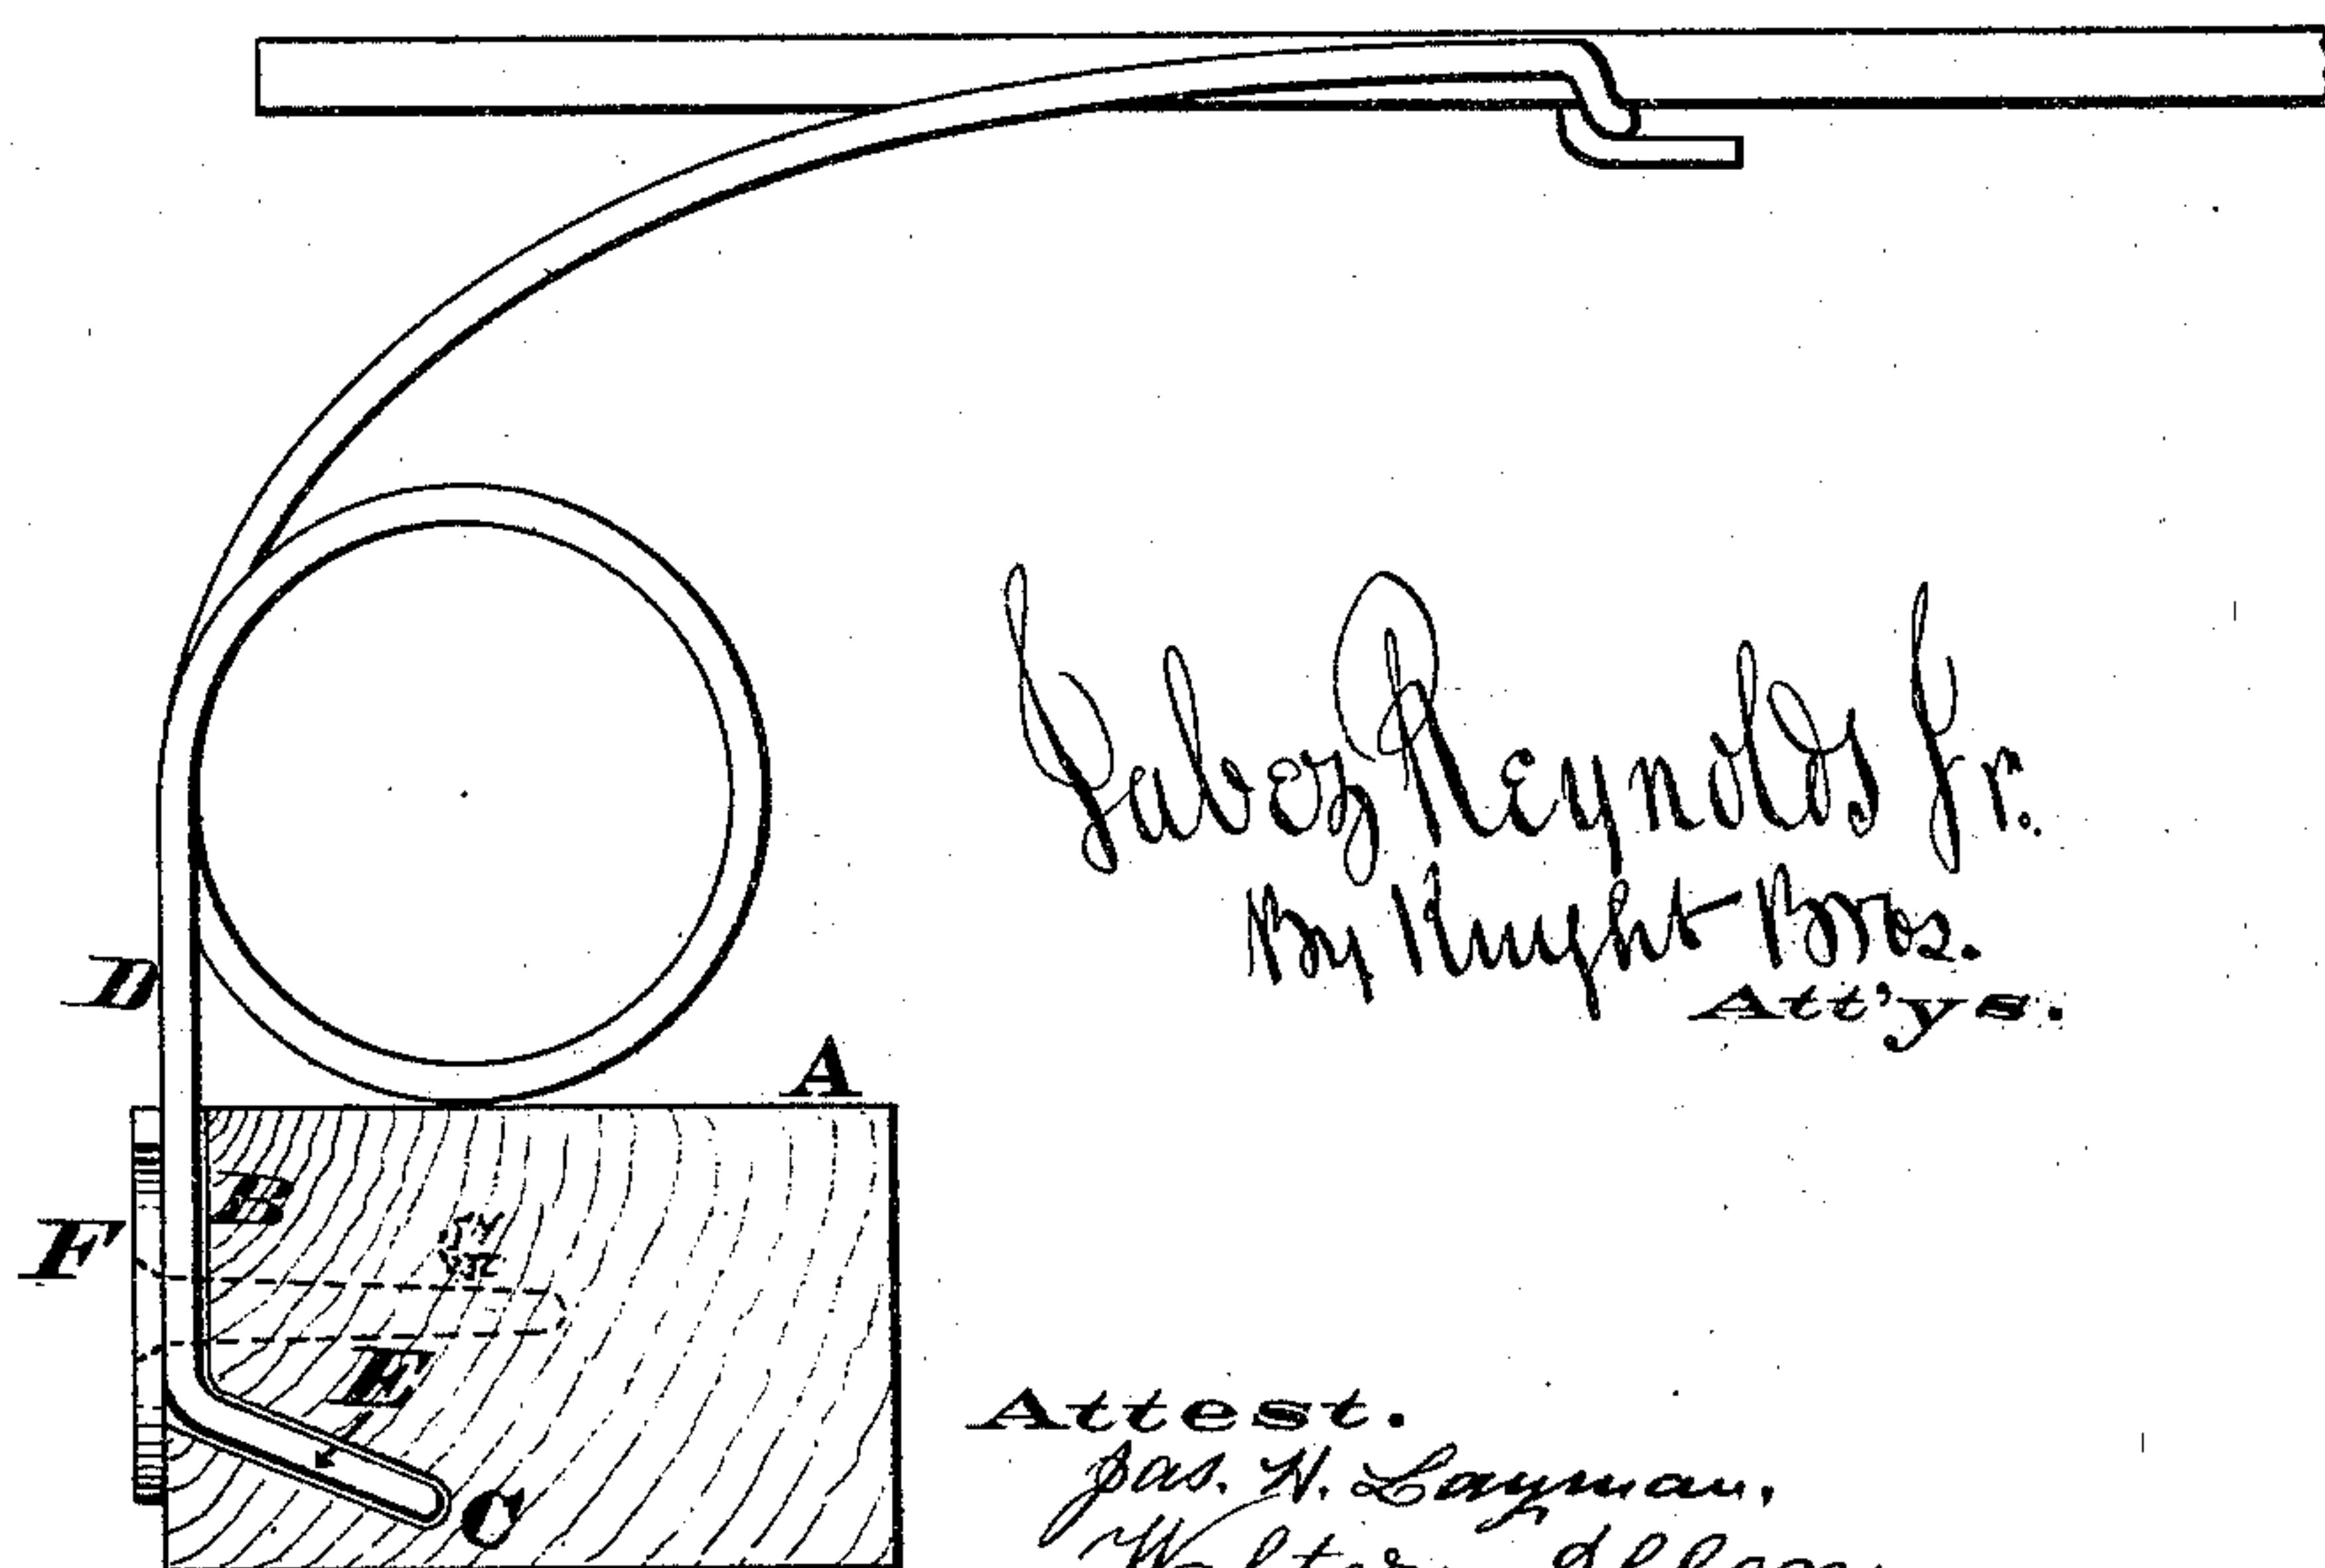 Jabez Reynolds Jr.
By Knight Bros.
Att'ys.
D
A
B
F
E
C
Attest.
Jas. H. Layman,
Walter Allen